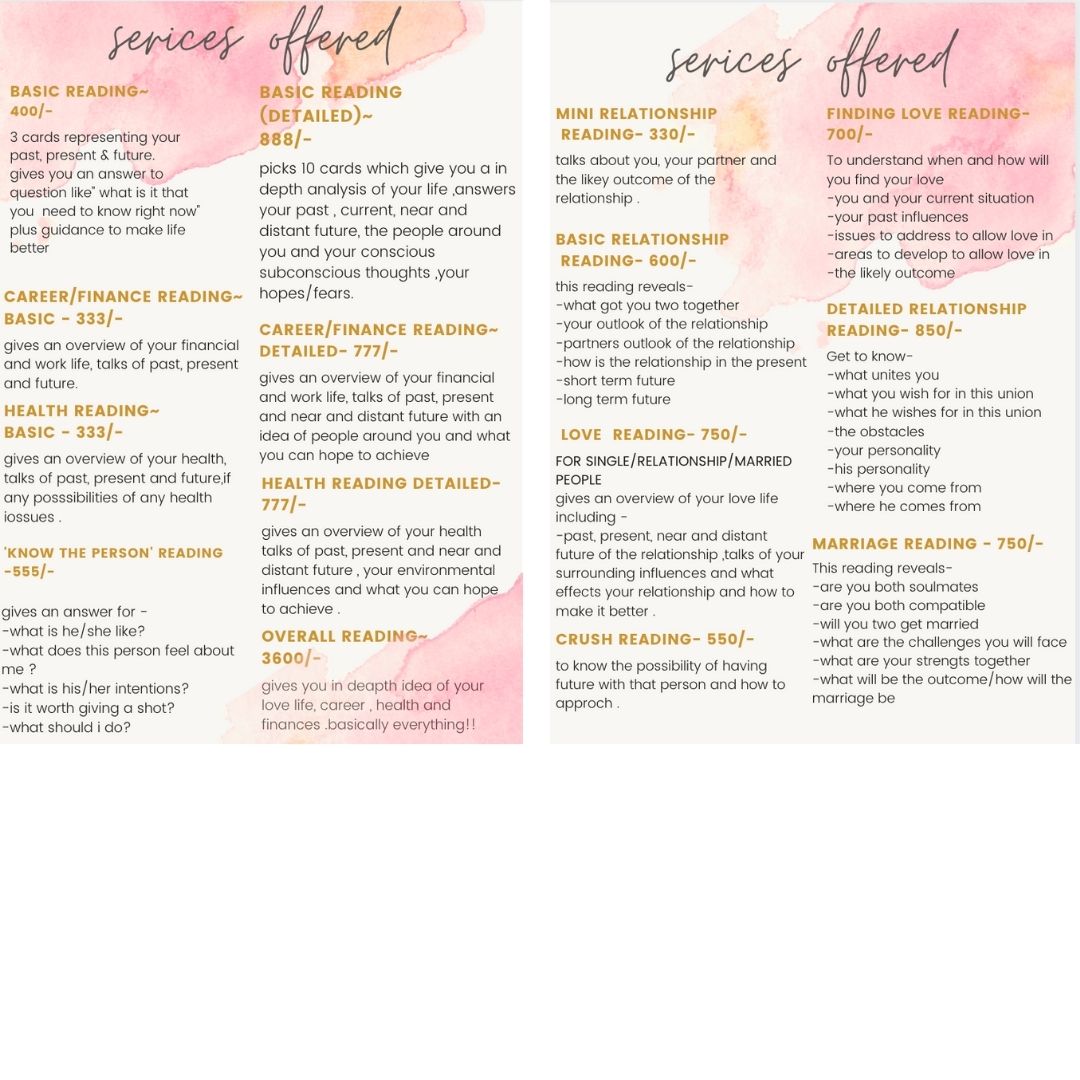 serices offered
BASIC READING~
400/-
3 cards representing your
past, present & future.
gives you an answer to
question like" what is it that
you need to know right now"
plus guidance to make life
better
CAREER/FINANCE READING~
BASIC - 333/-
gives an overview of your financial
and work life, talks of past, present
and future.
HEALTH READING~
BASIC - 333/-
gives an overview of your health,
talks of past, present and future,if
any posssibilities of any health
iossues .
'KNOW THE PERSON' READING
-555/-
gives an answer for -
-what is he/she like?
-what does this person feel about
me ?
-what is his/her intentions?
-is it worth giving a shot?
-what should i do?
BASIC READING
(DETAILED)~
888/-
picks 10 cards which give you a in
depth analysis of your life ,answers
your past , current, near and
distant future, the people around
you and your conscious
subconscious thoughts ,your
hopes/fears.
CAREER/FINANCE READING~
DETAILED- 777/-
gives an overview of your financial
and work life, talks of past, present
and near and distant future with an
idea of people around you and what
you can hope to achieve
HEALTH READING DETAILED-
777/-
gives an overview of your health
talks of past, present and near and
distant future , your environmental
influences and what you can hope
to achieve .
OVERALL READING~
3600/-
gives you in deapth idea of your
love life, career , health and
finances .basically everything!!
serices offered
MINI RELATIONSHIP
READING- 330/-
talks about you, your partner and
the likey outcome of the
relationship .
BASIC RELATIONSHIP
READING- 600/-
this reading reveals-
-what got you two together
-your outlook of the relationship
-partners outlook of the relationship
-how is the relationship in the present
-short term future
-long term future
LOVE READING- 750/-
FOR SINGLE/RELATIONSHIP/MARRIED
PEOPLE
gives an overview of your love life
including -
-past, present, near and distant
future of the relationship ,talks of your
surrounding influences and what
effects your relationship and how to
make it better .
CRUSH READING- 550/-
to know the possibility of having
future with that person and how to
approch .
FINDING LOVE READING-
700/-
To understand when and how will
you find your love
-you and your current situation
-your past influences
-issues to address to allow love in
-areas to develop to allow love in
-the likely outcome
DETAILED RELATIONSHIP
READING- 850/-
Get to know-
-what unites you
-what you wish for in this union
-what he wishes for in this union
-the obstacles
-your personality
-his personality
-where you come from
-where he comes from
MARRIAGE READING - 750/-
This reading reveals-
-are you both soulmates
-are you both compatible
-will you two get married
-what are the challenges you will face
-what are your strengts together
-what will be the outcome/how will the
marriage be